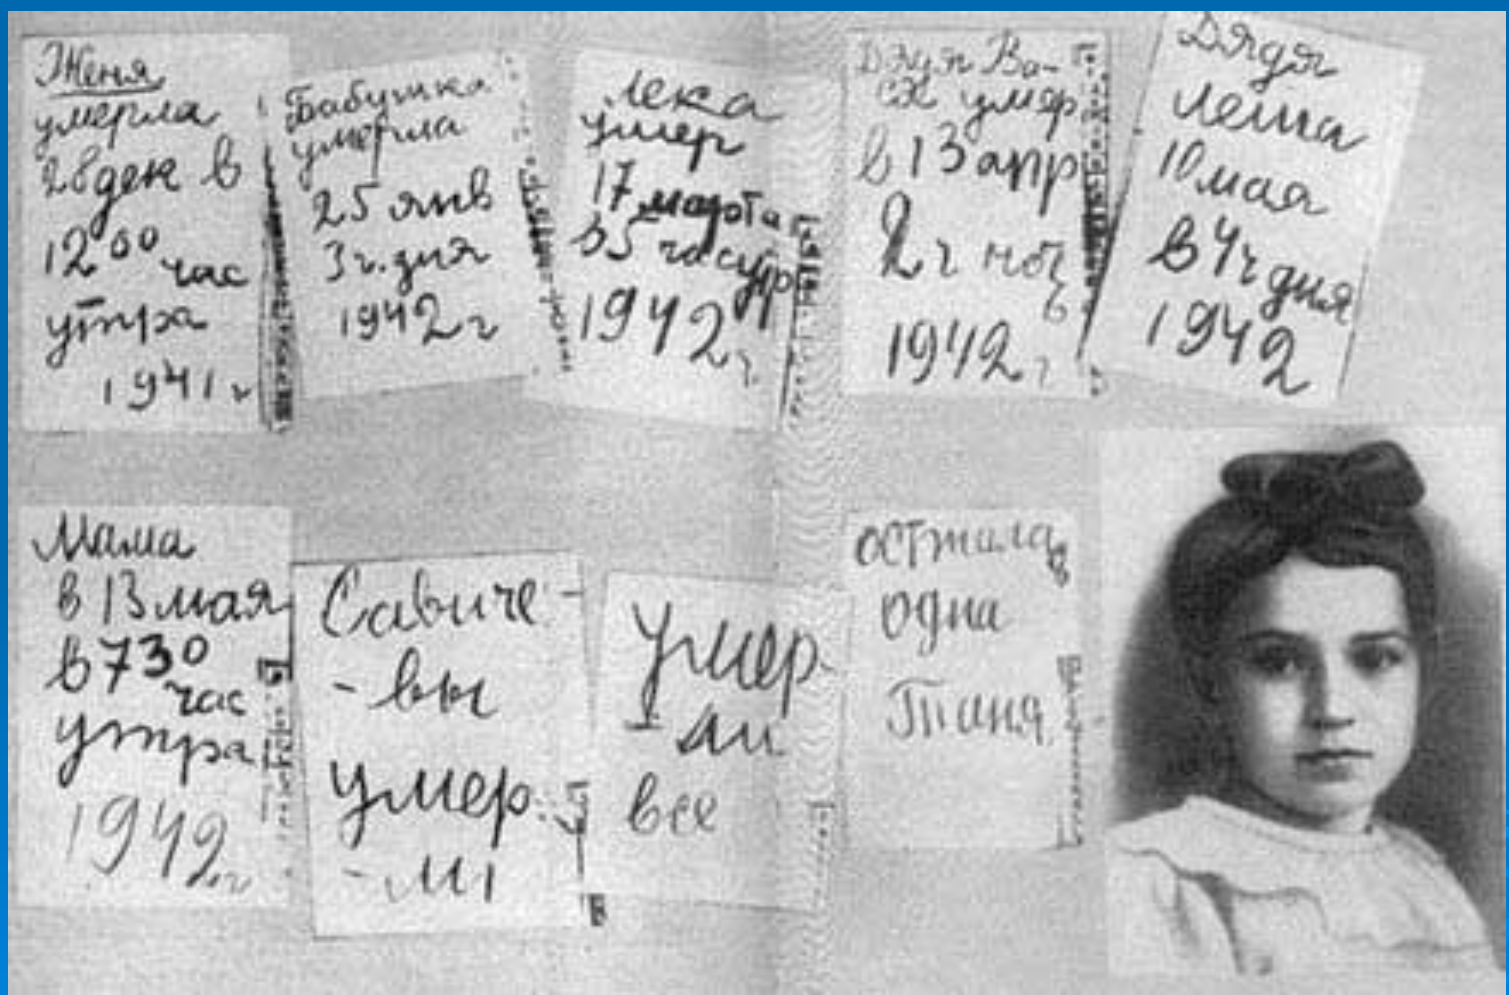 Женя
умерла
28 дек в
12 00 час
утра
1941 г
Бабушка
умерла
25 янв
3 ч. дня
1942 г
Лека
умер
17 марта
в 5 час утр
1942 г.
Дядя Ва-
ся умер
в 13 апр
2 ч ноч
1942 г
Дядя
Леша
10 мая
в 4 ч дня
1942
Мама
в 13 мая
в 7 30
час
утра
1942 г
Савиче-
-вы
умер
-ли
Умер-
-ли
все
Осталась
одна
Таня